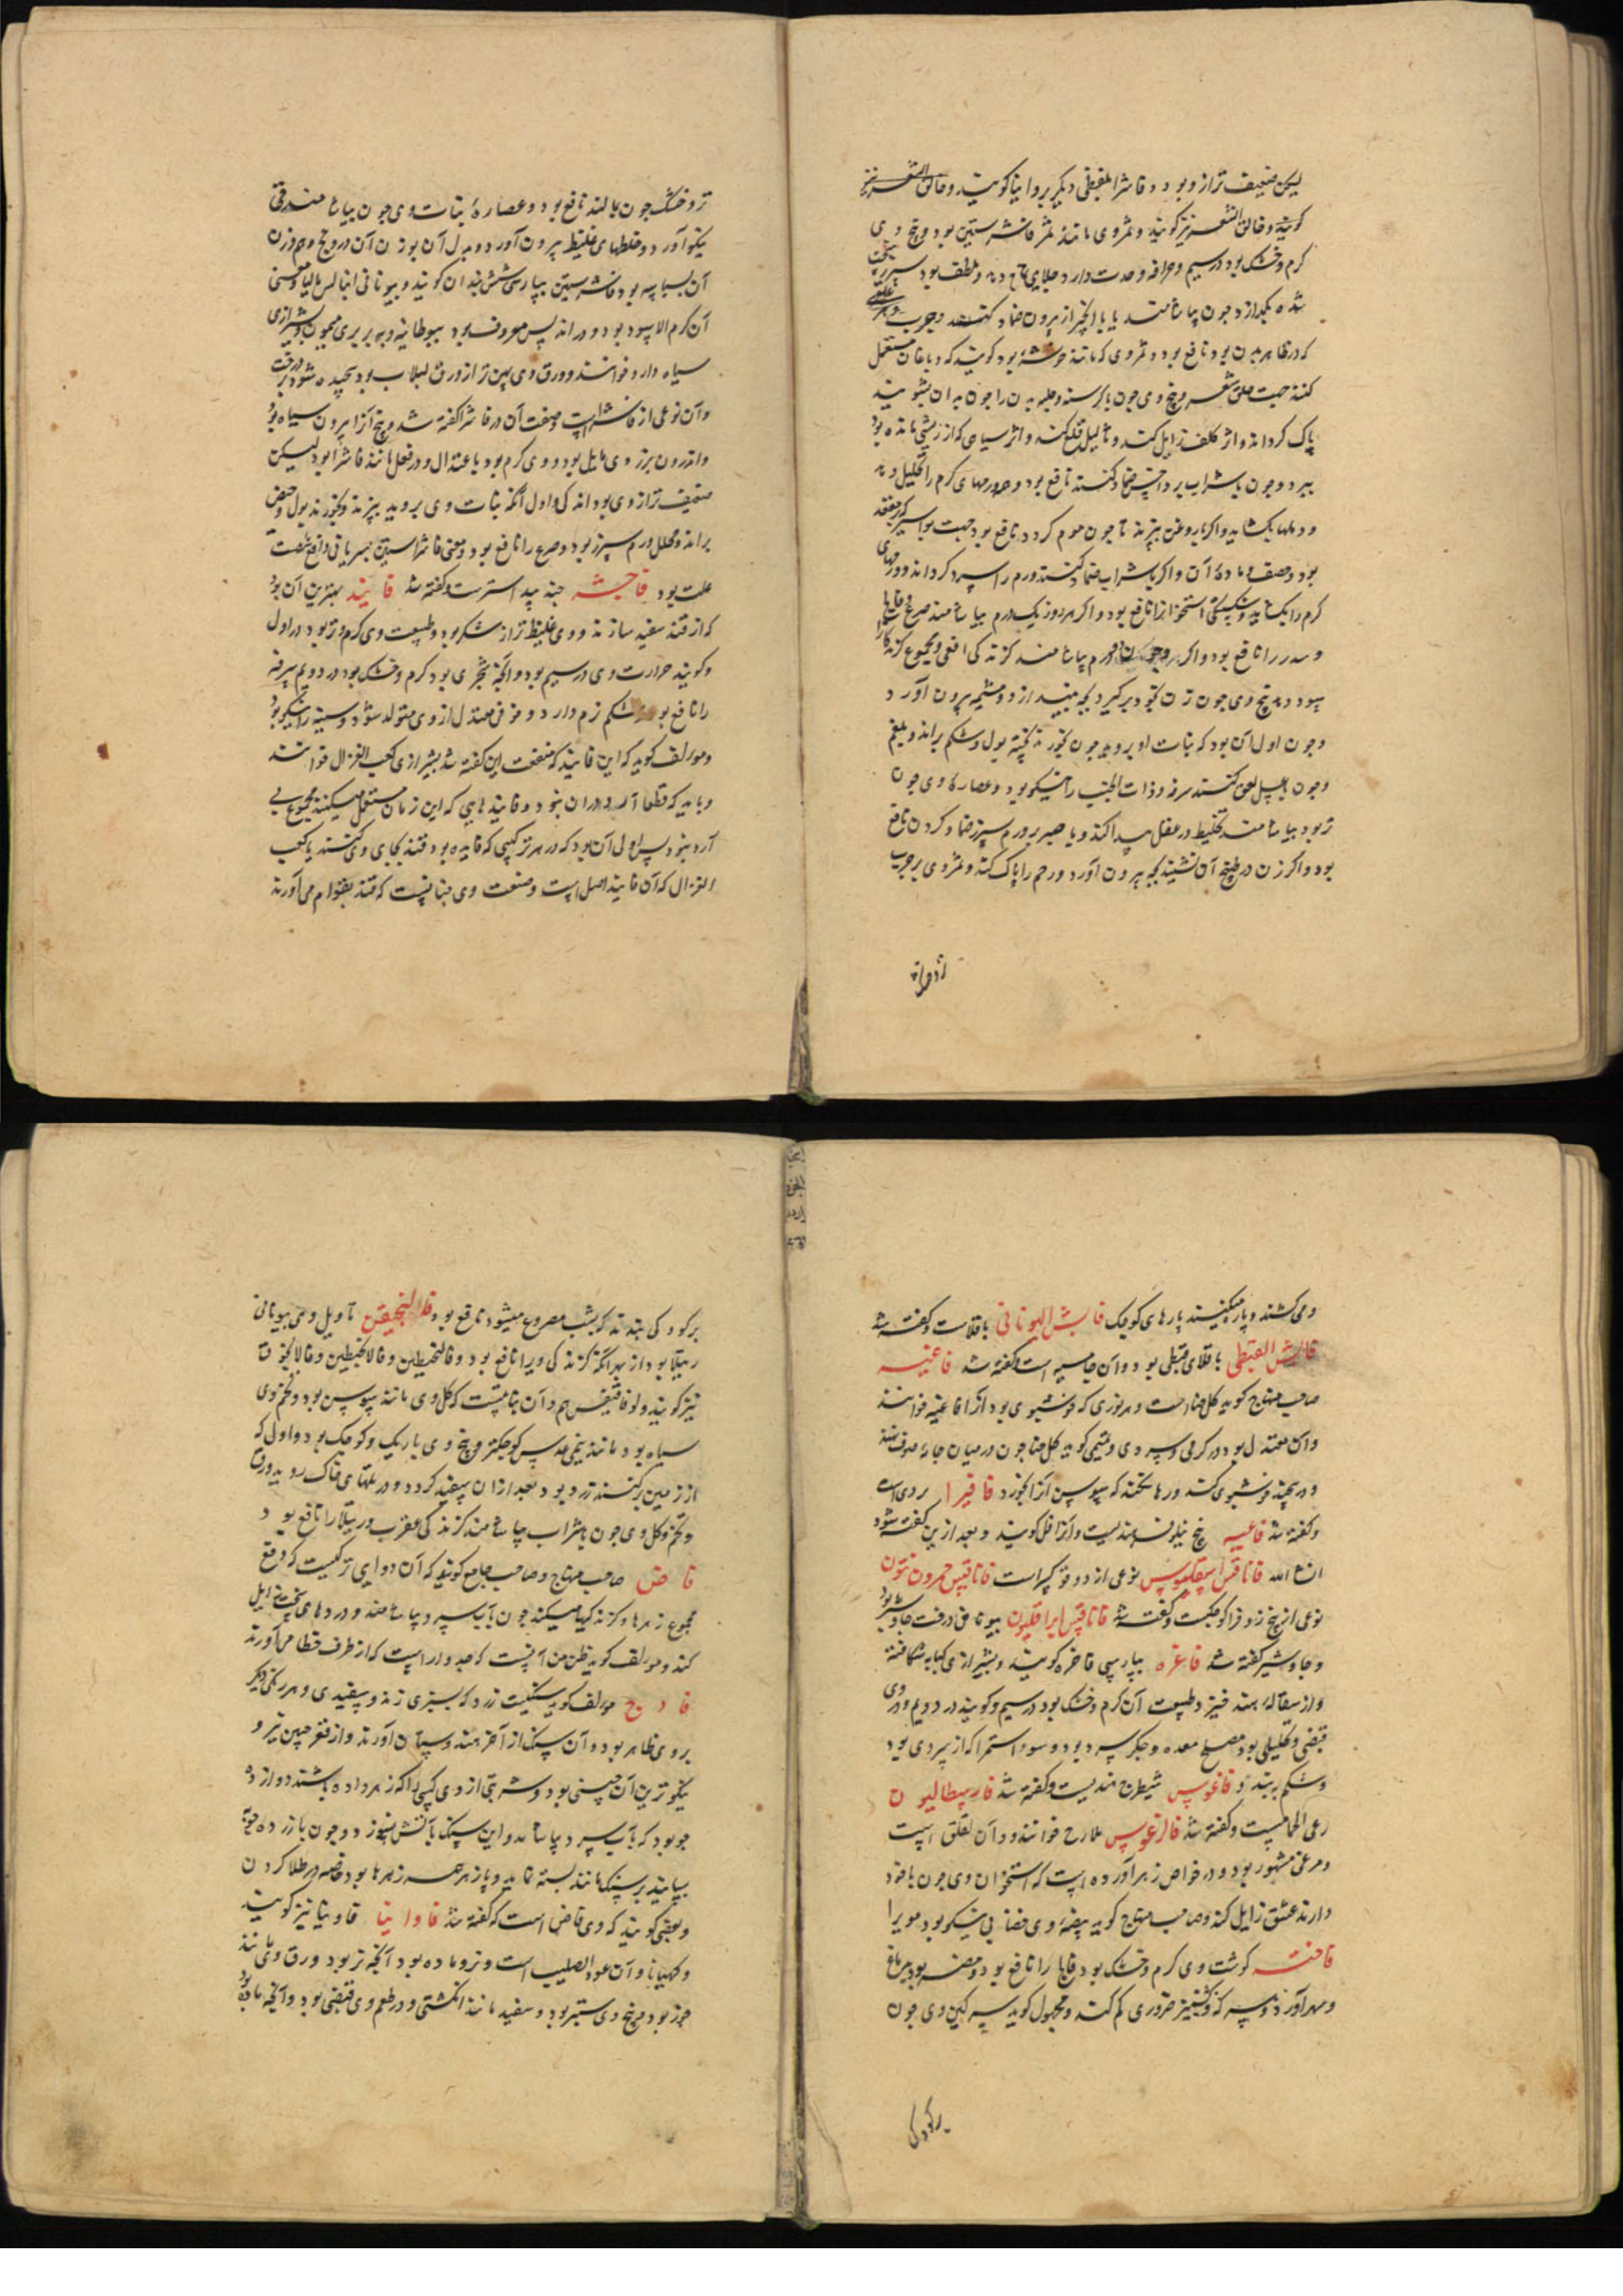 لیکن ضعیف تر از و بود و فاشرا بلفظی دیگر بروانیا گویند و حالق الشعر نیز
گویند و حالق الشعر نیز گویند و ثمر وی مانند ثمر فاشرستین بود و بیخ وی
گرم و خشک بود در سیم و حرافه و حدت دارد و جلای دهد و ملطف بود سپرز
شده بگدازد چون بیاشامند یا با انجیر از بیرون ضماد کنند و جرب
که در ظاهر بدن بود نافع بود و ثمر وی که مانند خوشه بود گویند که دباغان مستعمل
کنند جهت حلق شعر و بیخ وی چون با کرسنه و حلبه بدن را چون بدان بشویند
پاک گرداند و اثر کلف زایل کند و ثالیل قلع کند و اثر سیاهی که از ریشی مانده بود
ببرد و چون با شراب بر داخس ضماد کنند نافع بود و ورمهای گرم را تحلیل دهد
و دملها بگشاید و اگر با روغن بپزند تا چون موم گردد نافع بود جهت بواسیر که در مقعد
بود و آن و اگر با شراب ضماد کنند ورم را سرد گرداند و ورمهای
گرم را بگشاید و شکستگی استخوانرا نافع بود و اگر هر روز یک درم بیاشامند صرع و فالج
و سدر را نافع بود و اگر درم بیاشامند گزندگی افعی و مجموع گزندگان
سود دهد و بیخ وی چون زن بخود برگیرد بچه بیندازد و مشیمه بیرون آورد
و چون اول آن بود که نبات او بروید چون بخورند پخته بول و شکم براند و بلغم
و چون بعسل لعوق کنند سرفه و ذات الجنب را نیکو بود و عصاره وی چون
تر بود بیاشامند تخلیط در عقل پیدا کند و با صبر بر ورم سپرز ضماد کردن نافع
بود و اگر زن در طبیخ آن نشیند بچه بیرون آورد و رحم را پاک کند و ثمر وی بر جرب
تر و خشک چون بمالند نافع بود و عصاره نبات وی چون بیاشامند قی
نیکو آورد و خلطهای غلیظ بیرون آورد و بدل آن بوزن آن درونج و هم وزن
آن بسباسه بود فاشرستین بپارسی شش بندان گویند و بیونانی انبالس مالیا و معنی
آن کرم الاسود بود و در اندلس معروف بود ببوطانیه و به بربری میمون و بشیرازی
سیاه دارو خوانند و ورق وی پهن تر از ورق لبلاب بود و پیچیده شود بر درخت
و آن نوعی از فاشراست و صفت آن در فاشرا گفته شد و بیخ آنرا بیرون سیاه بود
و اندرون بزردی مایل بود و وی گرم بود باعتدال و در فعل مانند فاشرا بود لیکن
ضعیف تر از وی بود اندکی و اول آنگه نبات وی بروید بپزند و بخورند بول و حیض
براند و محلل ورم سپرز بود و صرع را نافع بود و معنی فاشرا ستین بسریانی دافع شصت
علت بود فاحشه جند بید استرست و گفته شد فانید بهترین آن بود
که از قند سفید سازند و وی غلیظ تر از شکر بود و طبیعت وی گرم و تر بود در اول
و گویند حرارت وی در سیم بود و آنچه شجری بود گرم و خشک بود در دویم سرفه
را نافع بود شکم نرم دارد و خونی معتدل از وی متولد شود و سینه را نیکو بود
و مولف گوید که این فانید که منفعت این گفته شد بشیرازی کعب الغزال خوانند
و باید که قطعا آرد در آن نبود و فانیدهایی که این زمان مستعمل میکنند مجموع بی
آرد نبود پس اولی آن بود که در هر ترکیبی که فانید بود قند بجای وی کنند یا کعب
الغزال که آن فانید اصل است و صنعت وی چنانست که قند بقوام می آورند
و می کشند و باز میکنند پارهای کوچک فابش الیونانی باقلاست و گفته شد
فابش القبطی باقلای قبطی بود و آن جامسه است و گفته شد فاغیه
صاحب منهاج گوید گل حناست و هر نوری که خوشبوی بود آنرا فاغیه خوانند
و آن معتدل بود در گرمی و سردی و تمیمی گوید گل حنا چون در میان جامه صوف نهند
و در پیچند خوشبوی کند و رها نکند که سوس آنرا بخورد فاقیرا ردی است
و گفته شد فاغیه بیخ نیلوفر هندیست و آنرا فل گویند و بعد ازین گفته شود
انشا الله فاناقس اسقلبیوس نوعی از دوقو کبیر است فاناقس خیرونیون
نوعی از بیخ زوفرا کوچکست و گفته شد فاناقس ایراقلیون بیونانی درخت جاوشیر بود
و جاوشیر گفته شد فاغره بپارسی فاخره گویند و بشیرازی کبابه شکافته
و از سقاله هند خیزد طبیعت آن گرم و خشک بود در سیم و گویند در دویم و در وی
قبضی و تحلیلی بود مصلح معده و جگر سرد بود و سوء استمرا که از سردی بود
و شکم ببندد فاغوس شیطرج هندیست و گفته شد فارسطالیون
رعی الحمامست و گفته شد فالرغوس بلارج خوانند و آن لقلق است
و مرغی مشهور بود و در خواص زهر آورده است که استخوان وی چون با خود
دارند عشق زایل کند و صاحب منهاج گوید بیضه وی خضابی نیکو بود مویرا
فاخته گوشت وی گرم و خشک بود فالج را نافع بود و مضر بود بدماغ
و سهر آورد و سرکه و گشنیز ضرری کم کند و مجهول گوید سرگین وی چون
بر کودکی بندند که بشب مصروع میشود نافع بود فالنجیقن تاویل وی بیونانی
رتیلا بود از بهر آنکه گزندگی ویرا نافع بود و فالنجیطس و فالانجیطس و فالانجیون
نیز گویند و لوفاقنیقس هم و آن نباتیست که گل وی مانند سوسن بود و تخم وی
سیاه بود مانند نیمی عدس کوچکتر و بیخ وی باریک و کوچک بود و اول که
از زمین برکنند زرد بود و بعد از آن سفید گردد و در تلهای خاک روید و ورق
و تخم و گل وی چون با شراب بیاشامند گزندگی عقرب و رتیلا را نافع بود
فاض صاحب منهاج و صاحب جامع گویند که آن دوایی ترکیست که دفع
مجموع زهرها و گزندگیها میکند چون بآب سرد بیاشامند و دردهای سخت زایل
کند و مولف گوید ظن من آنست که جدوار است که از طرف خطا می آورند
فادزج مولف گوید سنگیست زرد که بسبزی زند و سپیدی و هر رنگی دیگر
بر وی ظاهر بود و آن سنگ از آخر هند و سیستان آورند و از قعر چین نیز و
نیکوترین آن چینی بود و شربتی از وی کسی را که زهر داده باشند دوازده
جو بود که بآب سرد بیاشامد و این سنگ بآتش نسوزد و چون با زرده چوبه
بسایند بر سنگ مانند بسته نماید و پازهر همه زهرها بود خاصه در طلا کردن
و بعضی گویند که وی فاض است که گفته شد فاوانیا فاوینا نیز گویند
و کهیانا و آن عود الصلیب است و نر و ماده بود آنچه نر بود ورق وی مانند
جوز بود و بیخ وی ستبر بود و سفید مانند انگشتی و در طعم وی قبضی بود و آنچه ماده بود
بر کودکی